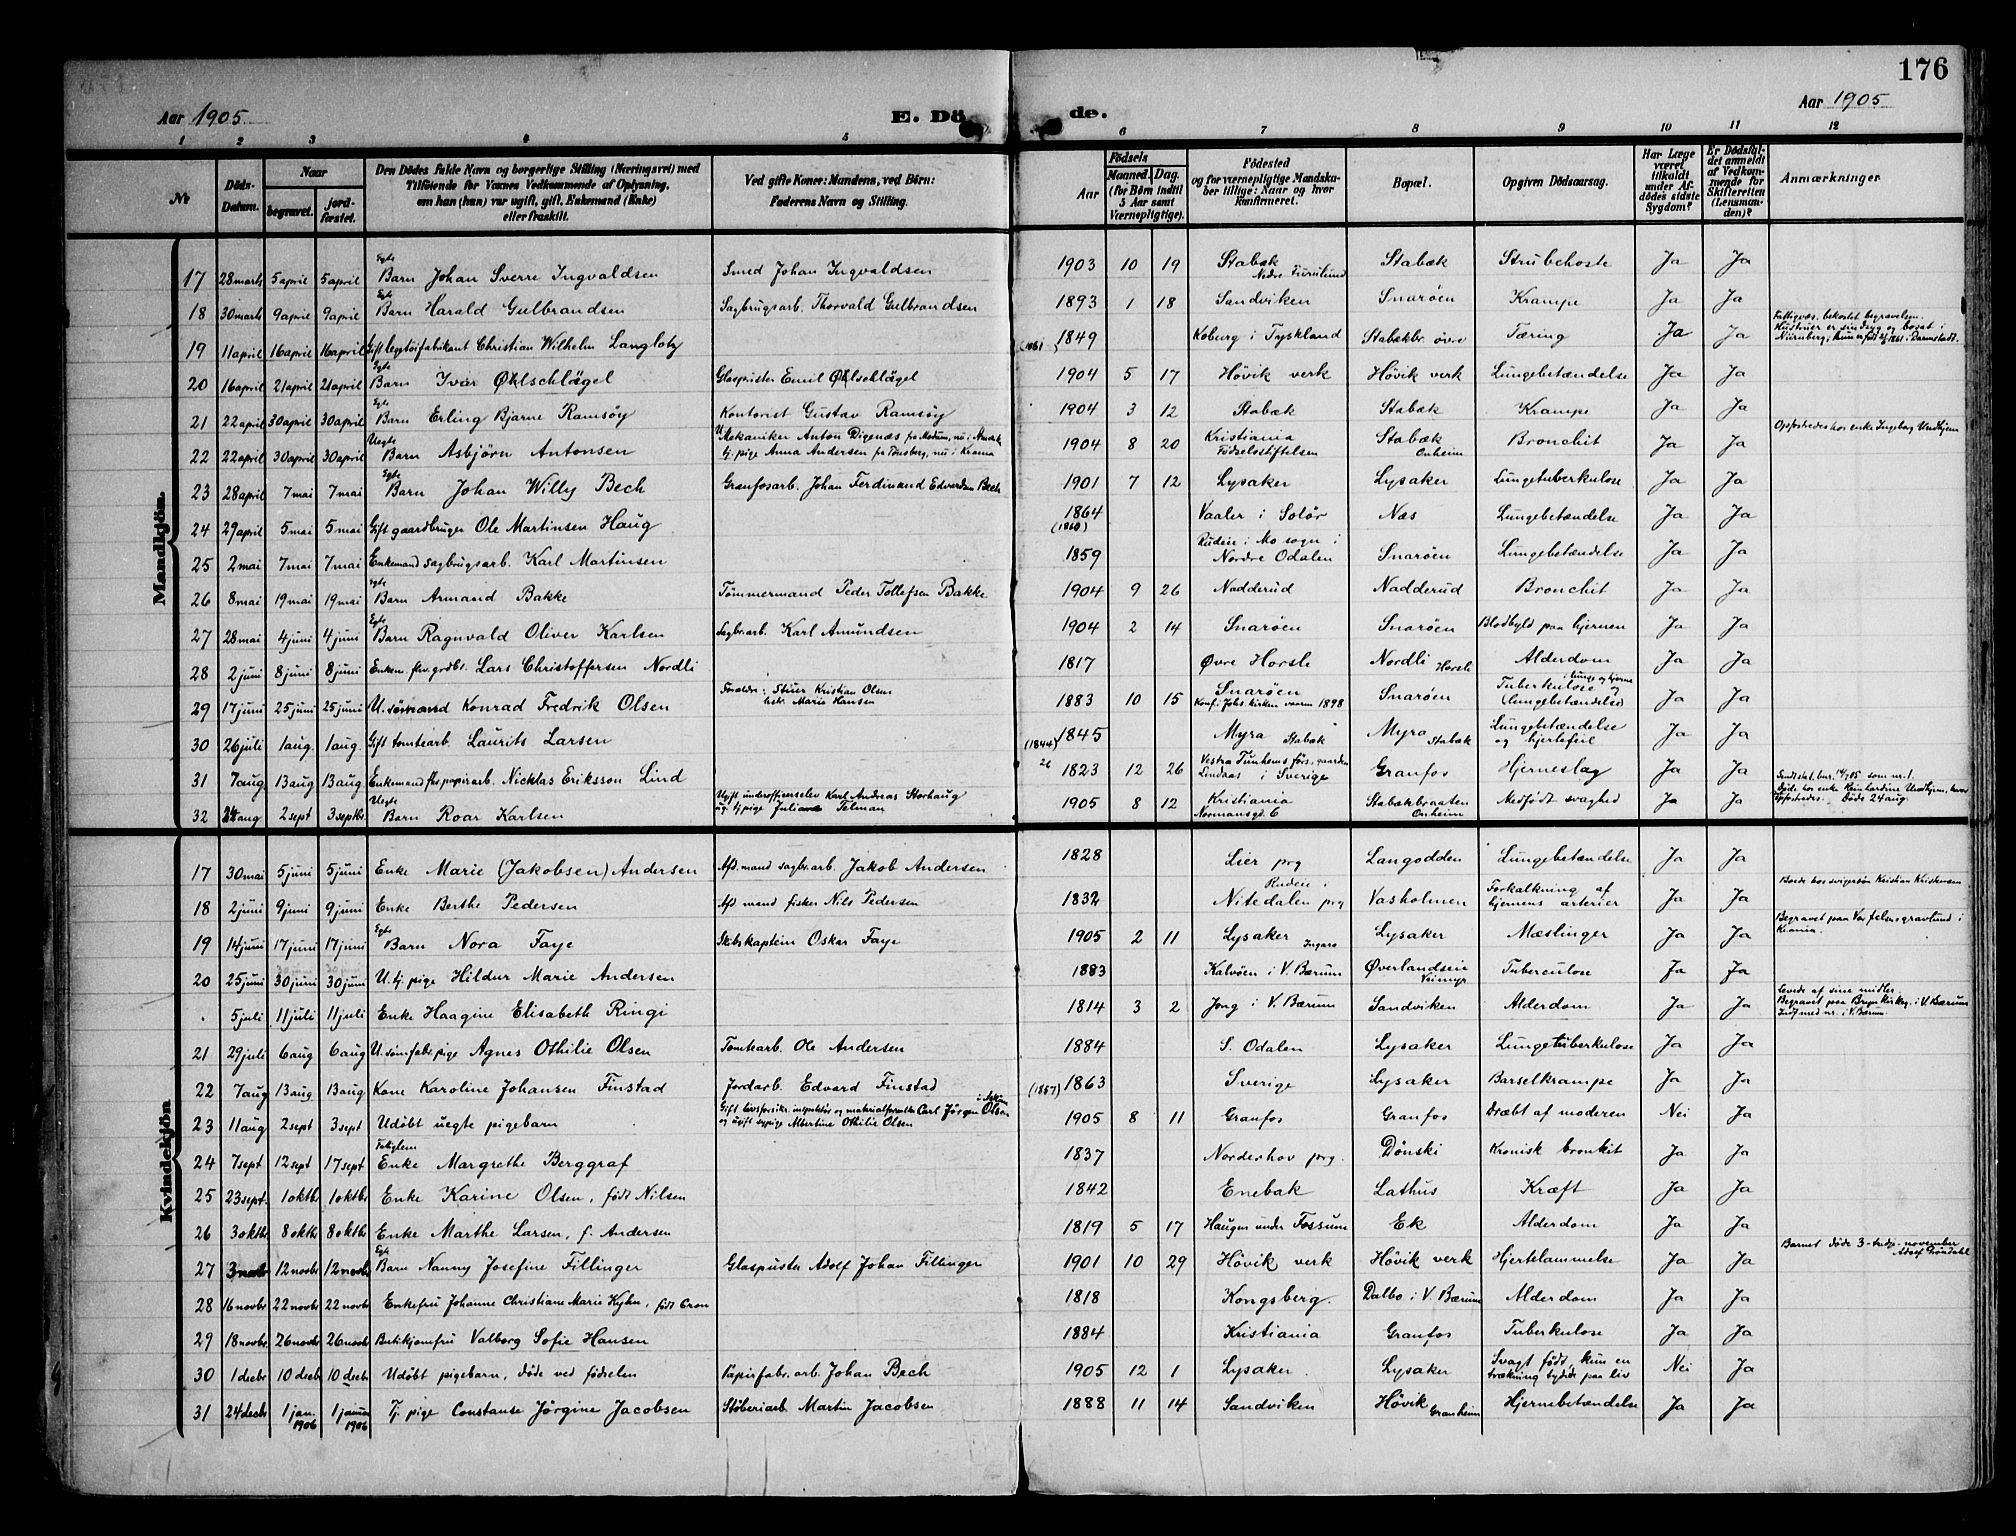 176
Aar 1905
E. Dö de.
Aar 1905
1 2 3 4 5 6 7 8 9 10 11 12
№
Döds-Datum.
Naar
begravet.
jordfæstet.
Den Dödes fulde Navn og borgerlige Stilling (Næringsvei) med
Tilföiende for Voxnes Vedkommende af Oplysning,
om han (hun) var ugift, gift, Enkemand (Enke)
eller fraskilt.
Ved gifte Koner: Mandens, ved Börn:
Faderens Navn og Stilling.
Aar
Födsels
Maaned. Dag.
(for Börn indtil
5 Aar samt
Værnepligtige).
Födested
og for værnepligtige Mandskaber tillige: Naar og hvor
konfirmeret.
Bopæl.
Opgiven Dödsaarsag.
Har Læge
været
tilkaldt
under Afdödes sidste
Sygdom?
Er Dödsfaldet anmeldt
af Vedkommende for
Skifteretten
(Lensmanden)?
Anmærkninger
Mandkjön.
17 28 marts 5 april 5 april Egte Barn Johan Sverre Ingvaldsen Smed Johan Ingvaldsen 1903 10 19 Stabæk Nedre Furulund Stabæk Strubehoste Ja Ja
18 30 marts 9 april 9 april Egte Barn Harald Gulbrandsen Sagbrugsarb. Thorvald Gulbrandsen 1893 1 18 Sandviken Snarøen Krampe Ja Ja
19 11 april 16 april 16 april Gift legetøifabrikant Christian Wilhelm Langlotz (1861) 1849 Koburg i Tyskland Stabækbr. øvre Tæring Ja Ja Fattigvæs. bekostet begravelsen. Hustruen er sindsyg og bosat i Nürnberg, hun er født 1861 i Darmstadt.
20 16 april 21 april 21 april Egte Barn Ivar Øhlschlägel Glaspuster Emil Øhlschlägel 1904 5 17 Høvik verk Høvik verk Lungebetændelse Ja Ja
21 22 april 30 april 30 april Egte Barn Erling Bjarne Ramsøy Kontorist Gustav Ramsøy 1904 3 12 Stabæk Stabæk Krampe Ja Ja
22 22 april 30 april 30 april Uegte Barn Asbjörn Antonsen U. Mekaniker Anton Digenæs fra Modum, nu i tj. pige Anna Andersen fra Tønsberg, nu i Krania 1904 8 20 Kristiania Fødselsstiftelsen Stabæk Onheim Bronchit Ja Ja Opfostredes hos enke Ingeborg
23 28 april 7 mai 7 mai Egte Barn Johan Willy Bech Granfosarb. Johan Ferdinand Edvardsen Bech 1901 7 12 Lysaker Lysaker Lungetuberkulose Ja Ja
24 29 april 5 mai 5 mai Gift gaardbruger Ole Martinsen Haug 1864 (1860) Vaaler i Solør Næs Lungebetændelse Ja Ja
25 2 mai 7 mai 7 mai Enkemand sagbrugsarb. Karl Martinsen 1859 Ruden i Mo sogn i Nordre Odalen Snarøen Lungebetændelse Ja Ja
26 8 mai 19 mai 19 mai Egte Barn Armand Bakke Tømmermand Peder Tollefsen Bakke 1904 9 26 Nadderud Nadderud Bronchit Ja Ja
27 28 mai 4 juni 4 juni Egte Barn Ragnvald Oliver Karlsen Sagbr.arb. Karl Amundsen 1904 2 14 Snarøen Snarøen Blodbyld paa hjernen Ja Ja
28 2 juni 8 juni 8 juni Enkem. fhv. grdbr. Lars Christoffersen Nordli 1817 Øvre Horsle Nordli Horsle Alderdom Ja Ja
29 17 juni 25 juni 25 juni U. sømand Konrad Fredrik Olsen Foreldre: Stuer Kristian Olsen hstr. Marie Hansen 1883 10 15 Snarøen Konf. i Johs. kirken vaaren 1898 Snarøen Tuberkulose i lunge og hjerne og (Lungebetændelse) Ja Ja
30 26 juli 1 aug. 1 aug. Gift tomtearb. Laurits Larsen (1844) 1845 Myra Stabæk Myra Stabæk Lungebetændelse og hjertefeil Ja Ja
31 7 aug 13 aug 13 aug Enkemand fhv. papirarb. Nicklas Eriksson Lind 26 1823 12 26 Vestra Tunhems förs., gaarden Lindaas i Sverige Granfos Hjerneslag Ja Ja
32 24 aug 2 sept 3 septbr Uegte Barn Roar Karlsen Ugift underofficerselev Karl Andreas Storhaug ug. tj. pige Juliane Telman 1905 8 12 Kristiania Normansgd. 6 Stabækbraaten Onheim Medfødt svaghed Ja Ja
Døde hos enke opfostredes. Døde 24 aug.
Kvindekjön
17 30 mai 5 juni 5 juni Enke Marie (Jakobsen) Andersen Afd. mand sagbr.arb. Jakob Andersen 1828 Lier prg Langodden Lungebetændelse Ja Ja
18 2 juni 9 juni 9 juni Enke Berthe Pedersen Afd. mand fisker Nils Pedersen 1832 Ruden i Nitedalen prg Vasholmen Forkalkning af hjernens arterier Ja Ja Boede hos svigersøn Kristian Kristensen
19 14 juni 17 juni 17 juni Egte Barn Nora Faye Skibskaptein Oskar Faye 1905 2 11 Lysaker Ingaro Lysaker Mæslinger Ja Ja Begravet paa Vor frelsers gravlund i Krania.
20 25 juni 30 juni 30 juni U. tj. pige Hildur Marie Andersen 1883 Kalvøen i V. Bærum Øverlandseie Veimyr Tuberculose Ja Ja
. 5 juli 11 juli 11 juli Enke Haagine Elisabeth Ringi 1814 3 2 Jong i V. Bærum Sandviken Alderdom Ja Ja Levede af sine midler. Begravet paa Bryn kirkeg. i V. Bærum Indf. med nr. i V. Bærum.
21 29 juli 6 aug 6 aug U. sømfabr. pige Agnes Othilie Olsen Tomtearb. Ole Andersen 1884 S. Odalen Lysaker Lungetuberkulose Ja Ja
22 7 aug 13 aug 13 aug Kone Karoline Johansen Finstad Jordarb. Edvard Finstad (1857) 1863 Sverige Lysaker Barselkrampe Ja Ja
23 11 aug 2 sept 3 sept Udøbt uegte pigebarn Gift livsforsikr. inspektør og materialforvalter Carl Jörgen Olsen i Askim og ugift sypige Albertine Othilie Olsen 1905 8 11 Granfos Granfos Dræbt af moderen Nei Ja
24 7 sept 12 sept 17 sept Fattiglem Enke Margrethe Berggraf 1837 Norderhov prg. Dønski Kronisk bronkit Ja Ja
25 23 sept. 1 oktbr 1 oktbr Enke Karine Olsen, født Nilsen 1842 Enebak Lathus Kræft Ja Ja
26 3 oktbr 8 oktbr 8 oktbr Enke Marthe Larsen, f. Andersen 1819 5 17 Haugen under Fossum Ek Alderdom Ja Ja
27 3 novbr 12 novbr 12 novbr Egte Barn Nanny Josefine Fillinger Glaspuster Adolf Johan Fillinger 1901 10 29 Høvik verk Høvik verk Hjertelammelse Ja Ja Barnet døde 3-tredje-november
28 16 novbr 22 novbr 22 novbr. Enkefru Johanne Christiane Marie Kyhn, født Cron 1818 Kongsberg. Dalbo i V. Bærum Alderdom Ja Ja
29 18 novbr 26 novbr 26 novbr Butikjomfru Valborg Sofie Hansen 1884 Kristiania Granfos Tuberkulose Ja Ja
30 1 decbr 10 decbr 10 decbr Udøbt pigebarn, døde ved fødselen Papirfabr. arb. Johan Bech 1905 12 1 Lysaker Lysaker Svagt født, kun en trækning tydede paa liv Nei Ja
31 24 decbr 1 jan. 1906 1 januar 1906 Tj. pige Constanse Jörgine Jacobsen Støberiarb. Martin Jacobsen 1888 11 14 Sandviken Høvik Granheim Hjernebetændelse Ja Ja